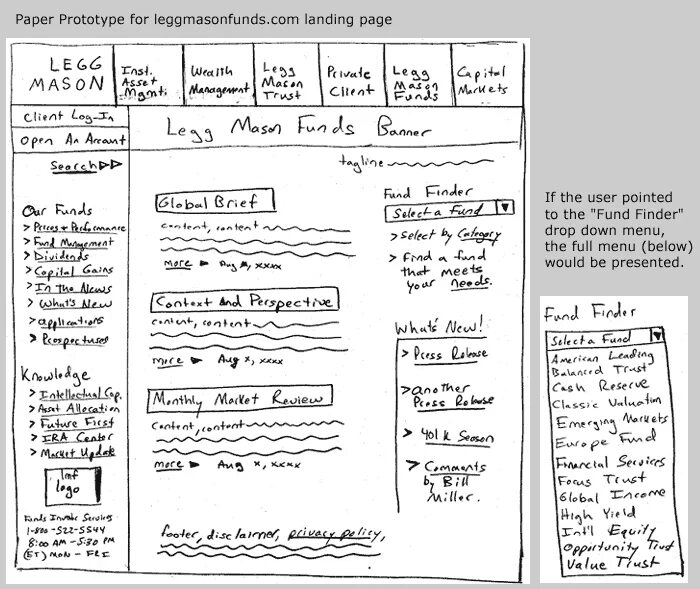 Paper Prototype for leggmasonfunds.com landing page
LEGG
MASON
Inst.
Asset
Mgmt.
Wealth
Management
Legg
Mason
Trust
Private
Client
Legg
Mason
Funds
Capital
Markets
Client Log-In
Open An Account
Legg Mason Funds Banner
Search
tagline
Our Funds
> Prices + Performance
> Fund Management
> Dividends
> Capital Gains
> In the News
> What's New
> applications
> Prospectuses
Knowledge
> Intellectual Cap.
> Asset Allocation
> Future First
> IRA Center
> Market Update
lmf
logo
Funds Investor Services
1-800-522-5544
8:00 AM - 5:30 PM
(ET) MON - FRI
Global Brief
content, content
more Aug x, xxxx
Context and Perspective
content, content
more Aug x, xxxx
Monthly Market Review
content, content
more Aug x, xxxx
footer, disclaimer, privacy policy,
Fund Finder
Select a Fund
> Select by Category
> Find a fund
that meets
your needs.
What's New!
> Press Release
> another
Press Release
> 401 k Season
> Comments
by Bill
Miller.
If the user pointed
to the "Fund Finder"
drop down menu,
the full menu (below)
would be presented.
Fund Finder
Select a Fund
American Leading
Balanced Trust
Cash Reserve
Classic Valuation
Emerging Markets
Europe Fund
Financial Services
Focus Trust
Global Income
High Yield
Int'l Equity
Opportunity Trust
Value Trust